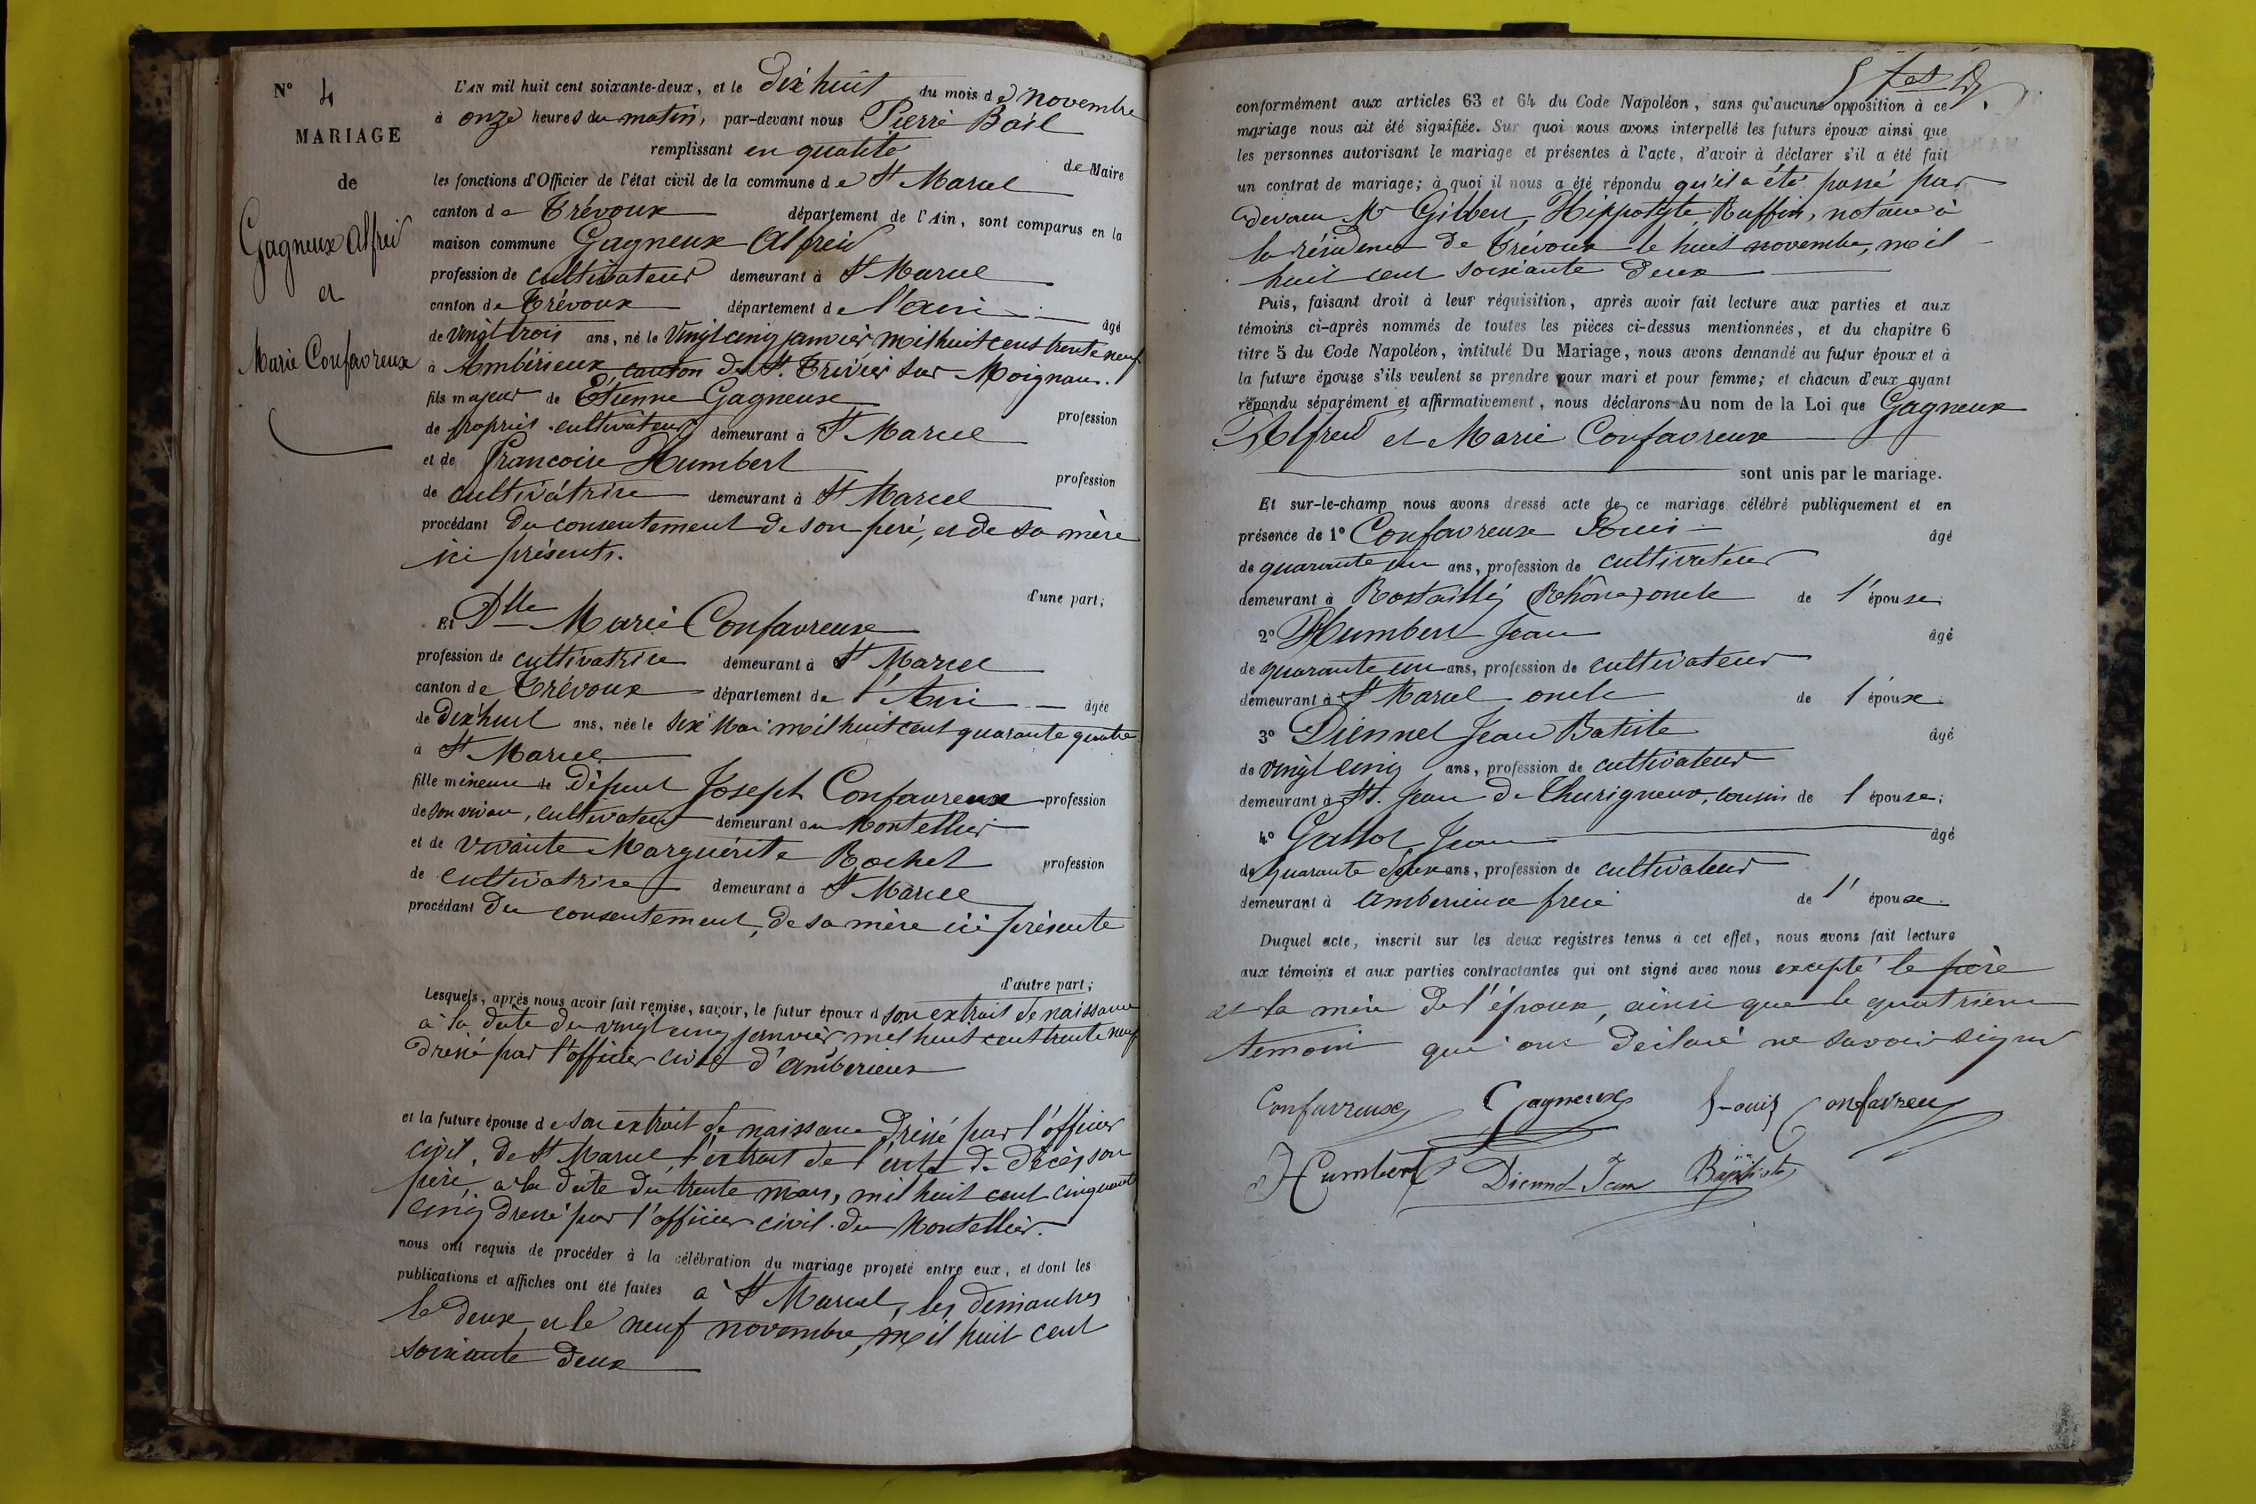 N° 4
MARIAGE
de
Gagneux Alfred
et
Marie Confavreux
L'AN mil huit cent soixante-deux, et le dix huit du mois de novembre
à onze heures du matin, par-devant nous Pierre Bail
remplissant en qualité de Maire
les fonctions d'Officier de l'état civil de la commune de St Marcel
canton de Trévoux département de l'Ain, sont comparus en la
maison commune Gagneux Alfred
profession de cultivateur demeurant à St Marcel
canton de Trévoux département de l'Ain âgé
de vingt trois ans, né le vingt cinq janvier mil huit cent trente neuf
à Ambérieux, canton de St. Trivier sur Moignans.
fils majeur de Etienne Gagneux profession
de propriét. cultivateur demeurant à St Marcel
et de Francoise Humbert profession
de cultivátrice demeurant à St Marcel
procédant du consentement de son peré, et de sa mère
ici présents.
d'une part;
Et Dlle Marie Confavreux
profession de cultivatrice demeurant à St Marcel
canton de Trévoux département de l'Ain âgée
de dix huit ans, née le six Mai mil huit cent quarante quatre
à St Marcel
fille mineure de Défunt Joseph Confavreux profession
de son vivant, cultivateur demeurant au Montellier
et de vivante Marguérite Rochet profession
de cultivatrice demeurant à St Marcel
procédant du consentement, de sa mère ici présente
d'autre part;
Lesquels, après nous avoir fait remise, savoir, le futur époux d son extrait de naissance
à la date du vingt cinq janvier mil huit cent trente neuf
dressé par l'officier civil d'Ambérieux
et la future épouse de son extrait de naissance dressé par l'officier
civil, de St Marcel, l'extrait de l'acte de décès son
père, à la date du trente mars, mil huit cent cinquante
cinq dressé par l'officier civil du Montellier.
nous ont requis de procéder à la célébration du mariage projeté entre eux, et dont les
publications et affiches ont été faites à St Marcel, les dimanches
le deux et le neuf novembre, mil huit cent
soixante deux
conformément aux articles 63 et 64 du Code Napoléon, sans qu'aucune opposition à ce
mariage nous ait été signifiée. Sur quoi nous avons interpellé les futurs époux ainsi que
les personnes autorisant le mariage et présentes à l'acte, d'avoir à déclarer s'il a été fait
un contrat de mariage; à quoi il nous a été répondu qu'il a été passé par
devant Me Gilbert Hippolyte Ruffin, notaire à
la résidence de Trévoux le huit novembre, mil
huit cent soixante deux
Puis, faisant droit à leur réquisition, après avoir fait lecture aux parties et aux
témoins ci-après nommés de toutes les pièces ci-dessus mentionnées, et du chapitre 6
titre 5 du Code Napoléon, intitulé Du Mariage, nous avons demandé au futur époux et à
la future épouse s'ils veulent se prendre pour mari et pour femme; et chacun d'eux ayant
répondu séparément et affirmativement, nous déclarons Au nom de la Loi que Gagneux
Alfred et Marie Confavreux
sont unis par le mariage.
Et sur-le-champ nous avons dressé acte de ce mariage célébré publiquement et en
présence de 1° Confavreux Louis âgé
de quarante un ans, profession de cultivateur
demeurant à (Rhône) oncle de l'épouse;
2° Humbert Jean âgé
de quarante un ans, profession de cultivateur
demeurant à St Marcel oncle de l'époux
3° Diennet Jean Batiste âgé
de vingt cinq ans, profession de cultivateur
demeurant à St. Jean de Thurigneux, cousin de l épouse;
4° Jean âgé
de quarante deux ans, profession de cultivateur
demeurant à Amberieux de l' épouse.
Duquel acte, inscrit sur les deux registres tenus à cet effet, nous avons fait lecture
aux témoins et aux parties contractantes qui ont signé avec nous excepté le père
et la mère de l'époux, ainsi que le quatrième
témoin qui ont déclaré ne savoir signer
Confavreux Gagneux Louis Confavreux
Humbert Diennet Jean Baptiste